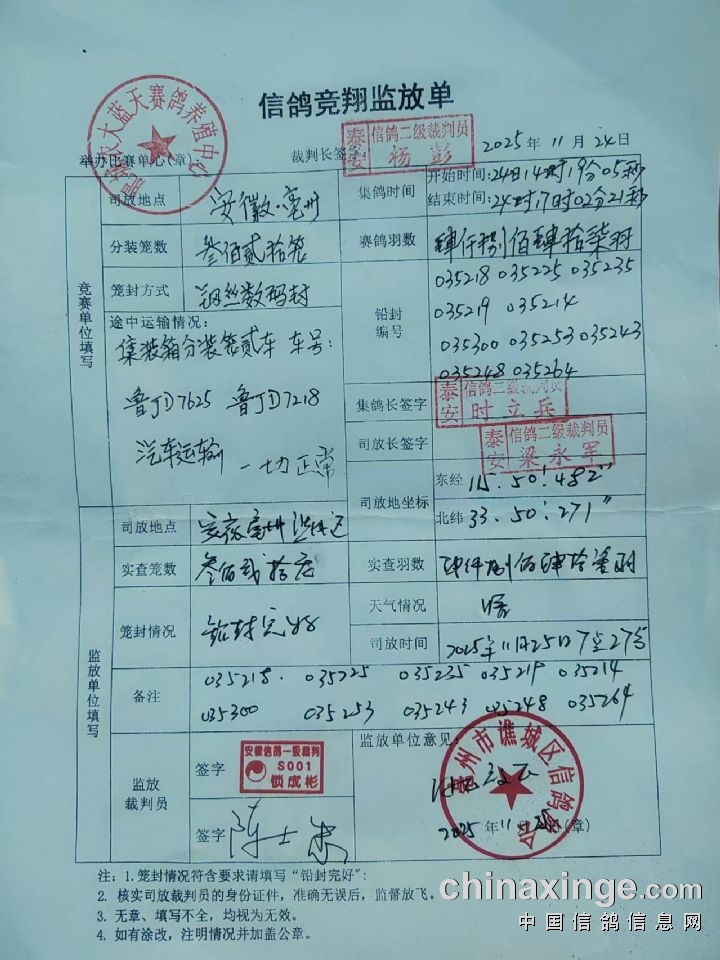 信鸽竞翔监放单
农大蓝天赛鸽养殖中心
举办比赛单心(章):
裁判长签字
泰安 信鸽二级裁判员 杨彭
2025年11月24日
竞赛单位填写
司放地点 安徽·亳州
集鸽时间 开始时间:24日14时19分05秒
结束时间:24时17时02分21秒
分装笼数 叁佰贰拾笼
赛鸽羽数 肆仟捌佰肆拾柒羽
笼封方式 钢丝数码封
铅封编号
035218 035225 035235
035219 035214
035300 035253 035243
035248 035264
途中运输情况:
集装箱分装笼贰车 车号:
鲁JD7625 鲁JD7218
汽车运输 一切正常
集鸽长签字 泰安 信鸽二级裁判员 时立兵
司放长签字 泰安 信鸽二级裁判员 梁永军
司放地坐标
东经 115.50′.482″
北纬 33.50′:271″
监放单位填写
司放地点 安徽亳州
实查笼数 叁佰贰拾
实查羽数
笼封情况 铅封完好
天气情况
司放时间 2025年11月25日7点27分
备注
035218. 035225 035235 035219 035214
035300 035253 035243 035248 035264
监放裁判员
签字 安徽信鸽一级裁判 S001 锁成彬
签字
监放单位意见:
州市谯城区信鸽协会
2025年11月25日(章)
注:1.笼封情况符合要求请填写“铅封完好”;
2. 核实司放裁判员的身份证件,准确无误后,监督放飞。
3. 无章、填写不全,均视为无效。
4. 如有涂改,注明情况并加盖公章。
chinaxinge.com
中国信鸽信息网